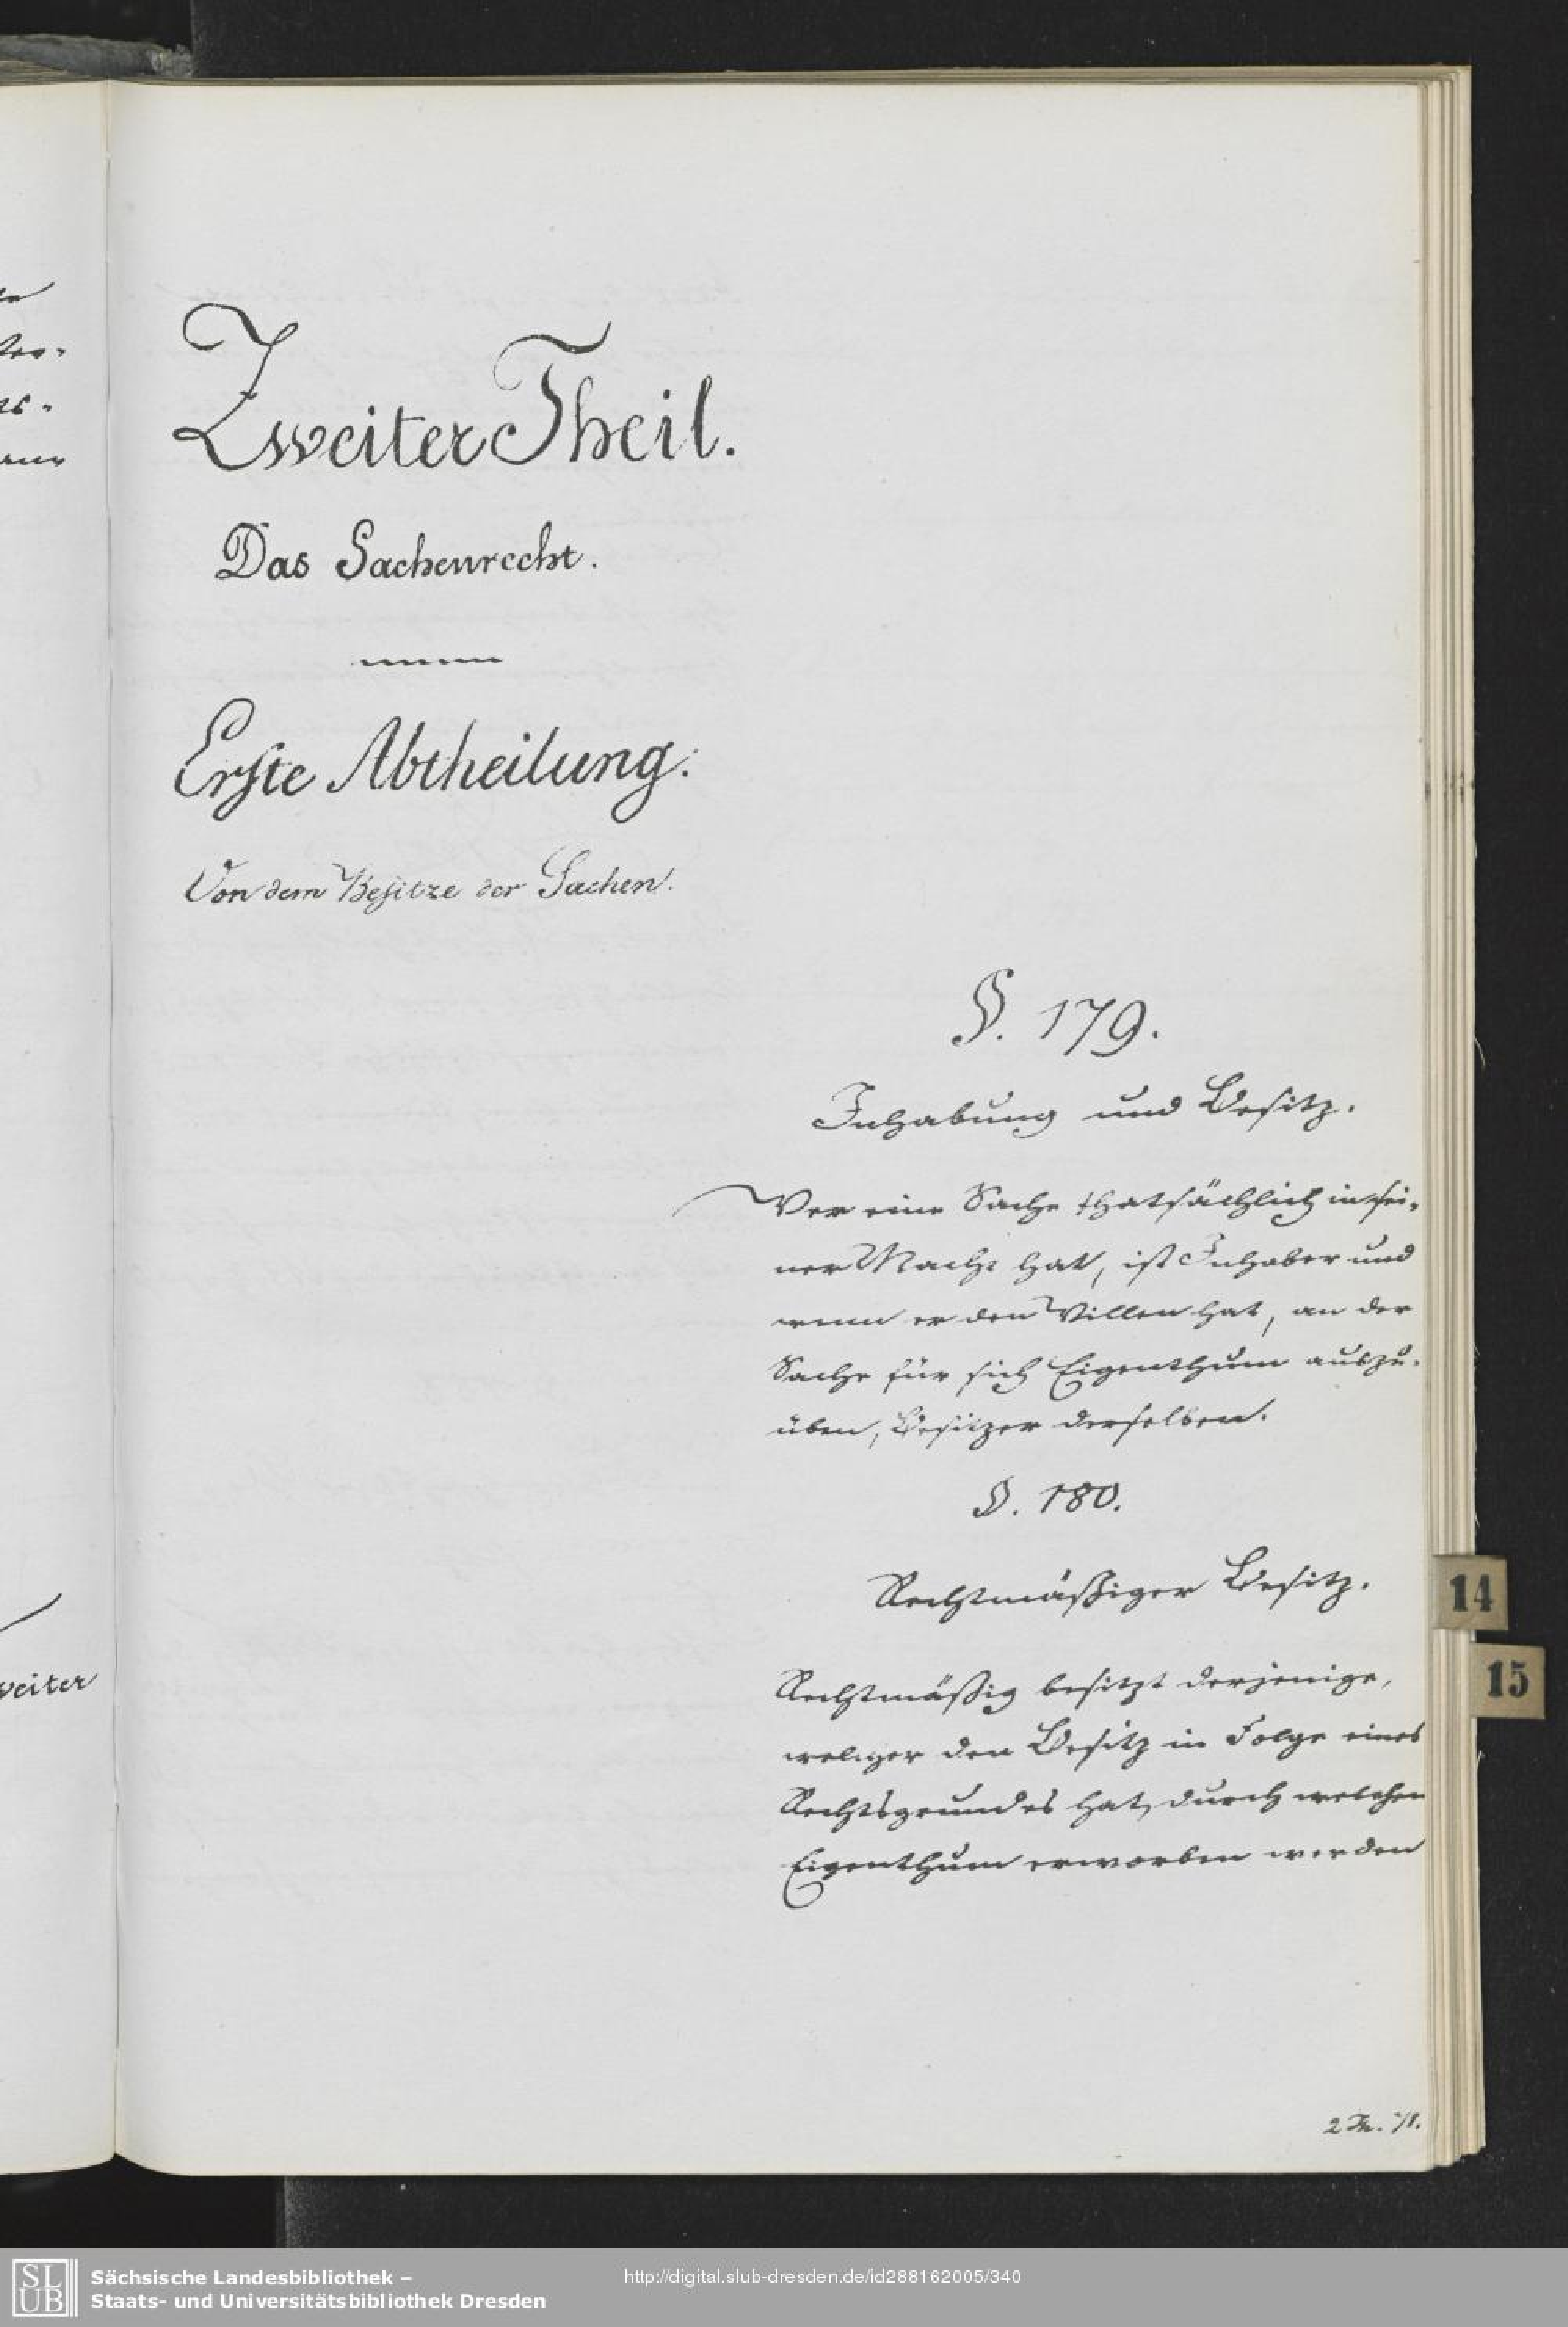 Zweiter Theil.
Das Sachenrecht.
Erste Abtheilung.
Von dem Besitze der Sachen.
§. 179.
Inhabung und Besitz.
Wer eine Sache thatsächlich in sei-
ner Macht hat, ist Inhaber und
wenn er den Willen hat, an der
Sache für sich Eigenthum auszu-
üben, Besitzer derselben.
§. 180.
Rechtmäßiger Besitz.
Rechtmäßig besitzt derjenige,
welcher den Besitz in Folge eines
Rechtsgrundes hat, durch welchen
Eigenthum erworben werden
2 Th. /1.
weiter
14
15
SLUB
Sächsische Landesbibliothek –
Staats- und Universitätsbibliothek Dresden
http://digital.slub-dresden.de/id288162005/340